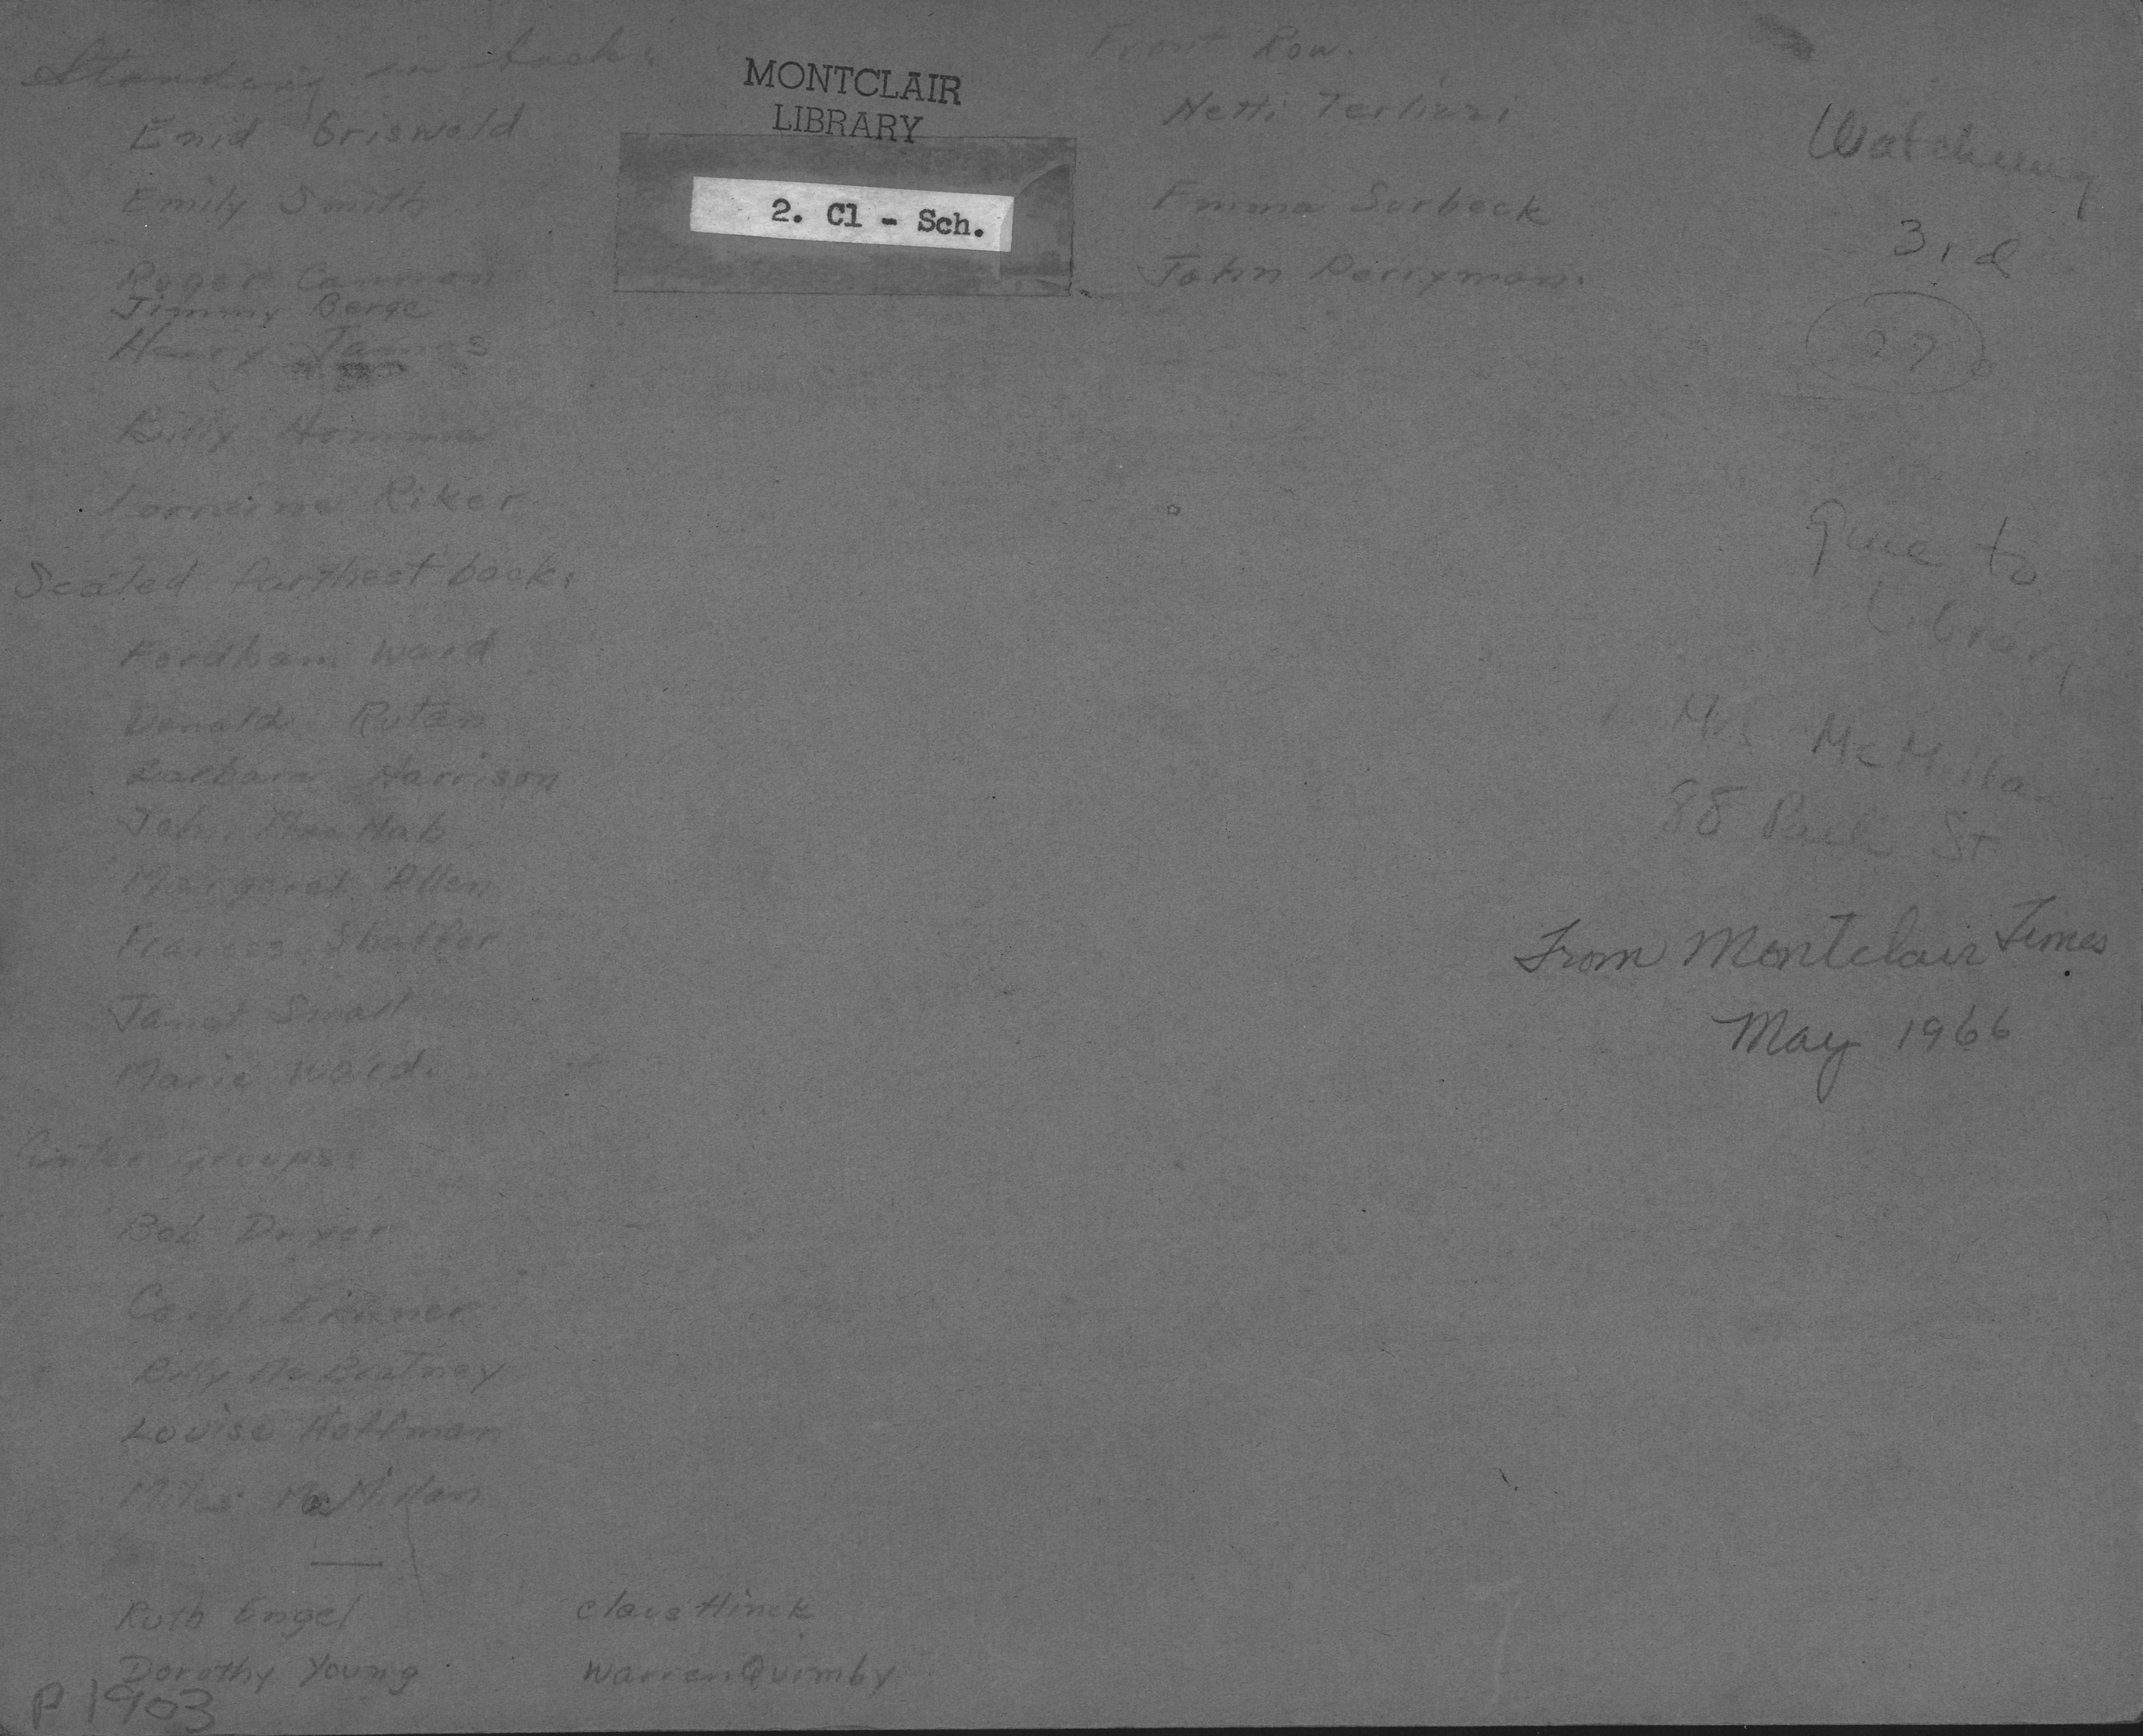 Standing in back:
Enid Griswold
Emily Smith
Roger Cannon
Jimmy Berge
Harry James
Billy Homma
Lorraine Riker
Seated farthest back:
Fordham Ward
Donald Rutan
Barbara Harrison
John MacNab
Margaret Allen
Frances Shaffer
Janet Small
Marie Ward.
Center groups:
Bob Dryer
Billy McBratney
Louise Hoffman
Miles McMillan
Ruth Engel
Dorothy Young
Claus Hinck
Warren Quimby
P 1903
MONTCLAIR
LIBRARY
2. Cl - Sch.
Front Row.
Netti Terlizzi
Emma Surbeck
John Perryman.
Watchung
3rd
27
Give to
Library
McMillan
88 Park St
From Montclair Times
May 1966